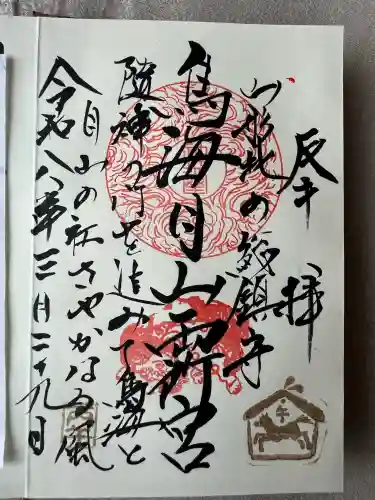 丙午 拝
山形北の総鎮守
鳥海月山両所宮
随神の を みて鳥海と
月山の社さやかなる風
令和八年三月二十九日
午